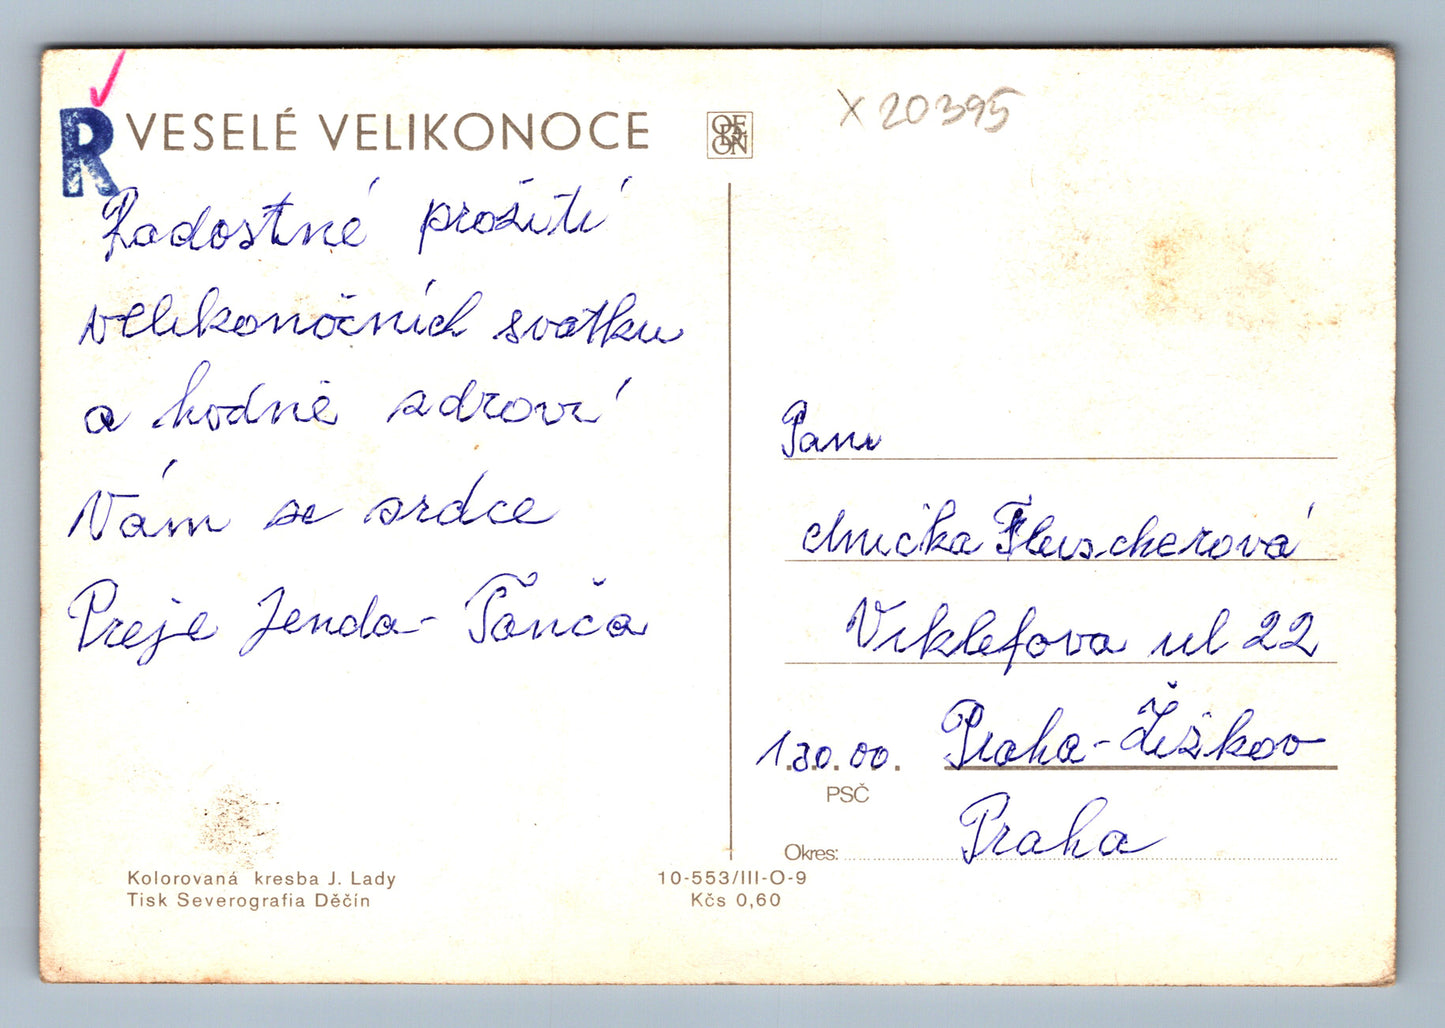 R
VESELÉ VELIKONOCE
ORBIS
X 20395
Radostné prožití
velikonočních svatku
a hodně zdroví
Vám se srdce
Preje Jenda - Tonča
Pani
Anička Fleischerová
Viklefova ul 22
130.00. Praha-Žižkov
PSČ
Praha
Okres:
Kolorovaná kresba J. Lady
Tisk Severografia Děčín
10-553/III-O-9
Kčs 0,60